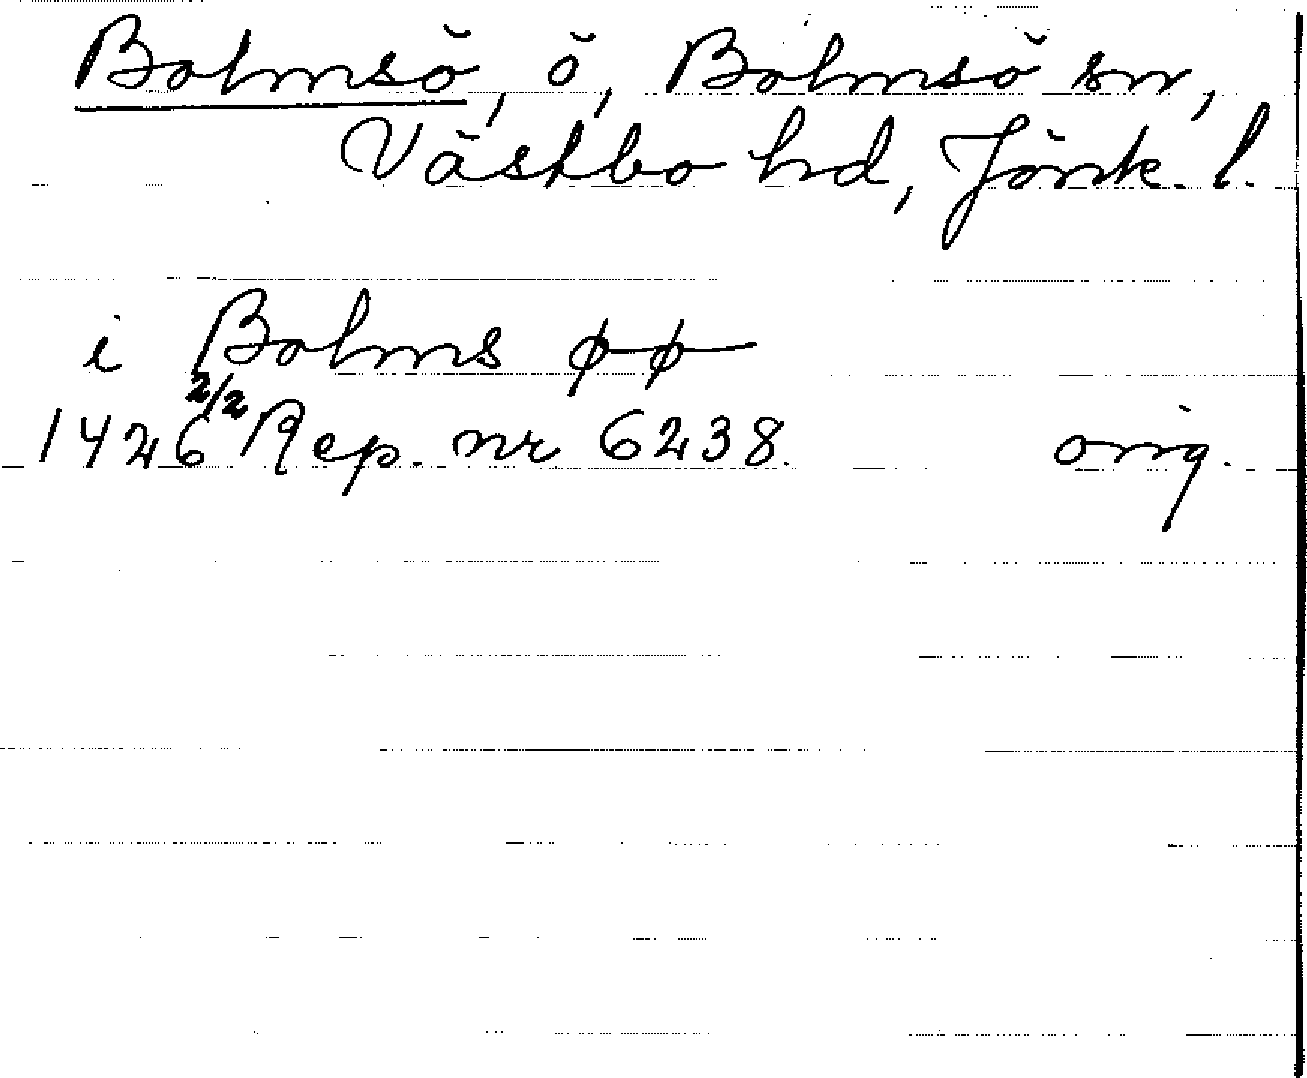 Bolmsö, ö, Bolmsö sn,
Västbo hd, Jönk. l.
i Bolms øø
1426 2/2 Rep. nr 6238. orig.